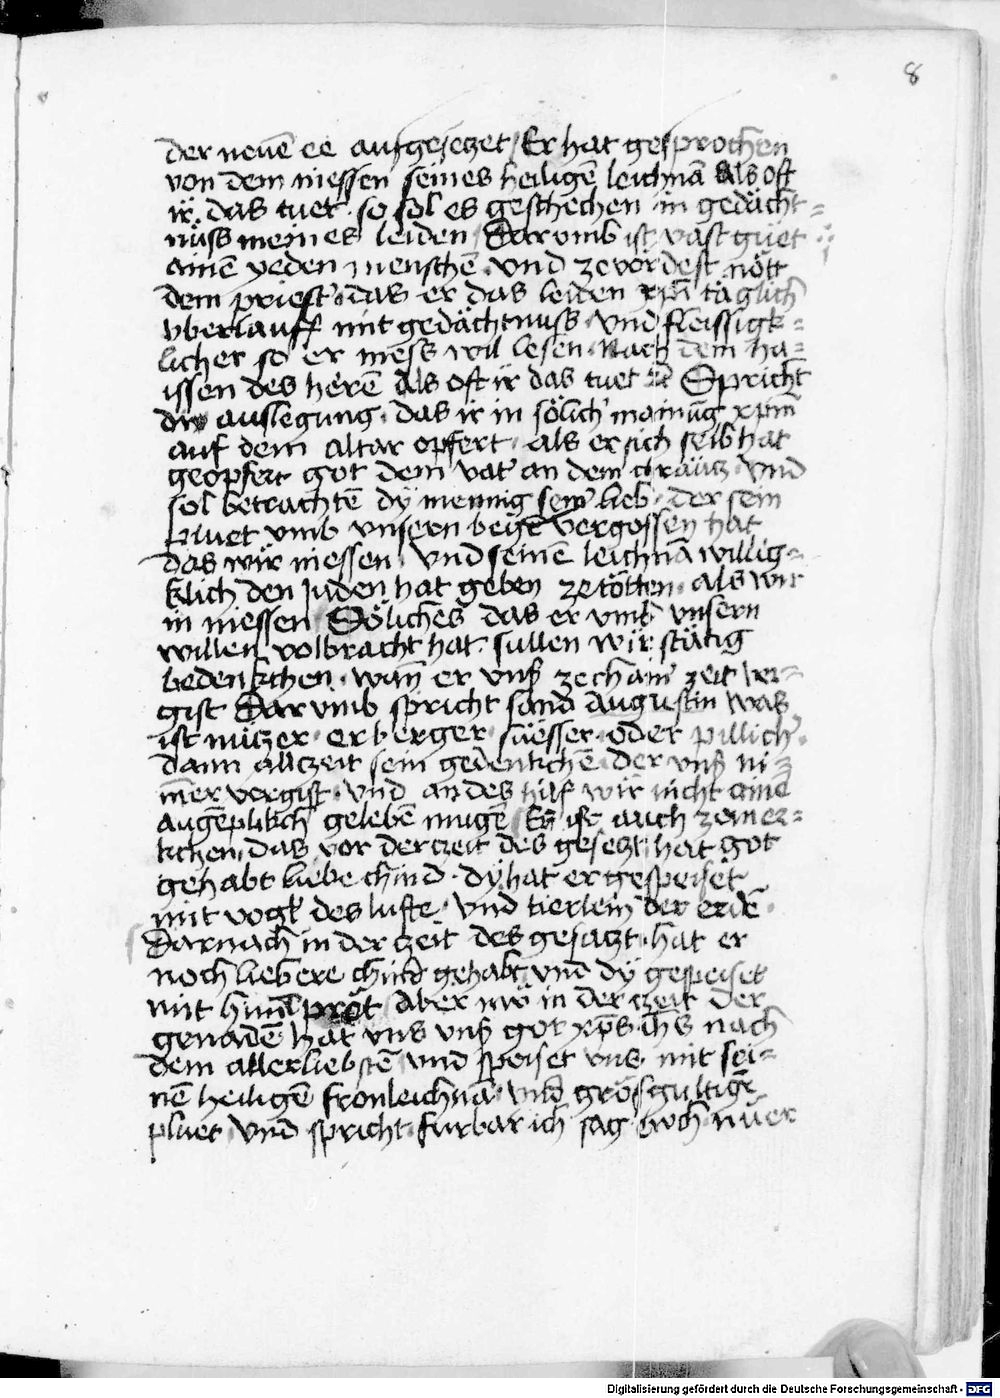 8
der neuē ee aufgesetzet / Er hat gesprochen
von dem niessen seines heiligē leichnā Als oft
ir das tuet · so sol es geschechen in gedächt=
nüss meines leiden / Dar vmb ist vast güet
ainē yeden menschē · vnd ze vordest nött
dem priest' · das er das leiden xpī täglich
vberlauff mit gedächtnuss · vnd fleissigk=
licher so er mess wil lesen · Nach dem ha=
issen des herē Als oft ir das tuet Spricht
die auslegung · das ir in sölich' mainūg xpm̄
auf dem altar opfert · als er sich selb hat
geopfert got dem vat' an dem chräutz · vnd
sol betrachtē dy mennig sein' lieb · der sein
pluet vmb vnsern vergossen hat
das wir niessen · vnd seinē leichnā willig=
klich den Juden hat geben ze tötten · als wir
in niessen / Söliches das er vmb vnsern
willen volbracht hat · sullen wir stätig
bedenkchen · wan̄ er vnß ze chain' zeit ver=
gist Dar vmb spricht sand Augustin was
ist nützer · erberger · süesser · oder pillich'
dann allczeit sein gedenkchē · der vnß ni=
m̄er vergist · vnd an des hilf wir nicht ainē
augēplikch gelebē mugē Es ist auch ze mer=
kchen, das vor der czeit des gesetzt hat got
gehabt liebe chind · dy hat er gespeiset
mit vogl des lufts · vnd tierlein der erdē ·
Darnach in der czeit des gesatzt · hat er
noch liebere chind gehabt vnd dy gespeiset
mit himl pröt Aber nw in der czeit der
genadē hat vns vnß got xp̄s ih̄s nach
dem allerliebstē vnd speiset vns · mit sei=
nē heiligē fronleichnā · vnd grösgultigē
pluet vnd spricht · furbar ich sag ewch · nuer
Digitalisierung gefördert durch die Deutsche Forschungsgemeinschaft - DFG